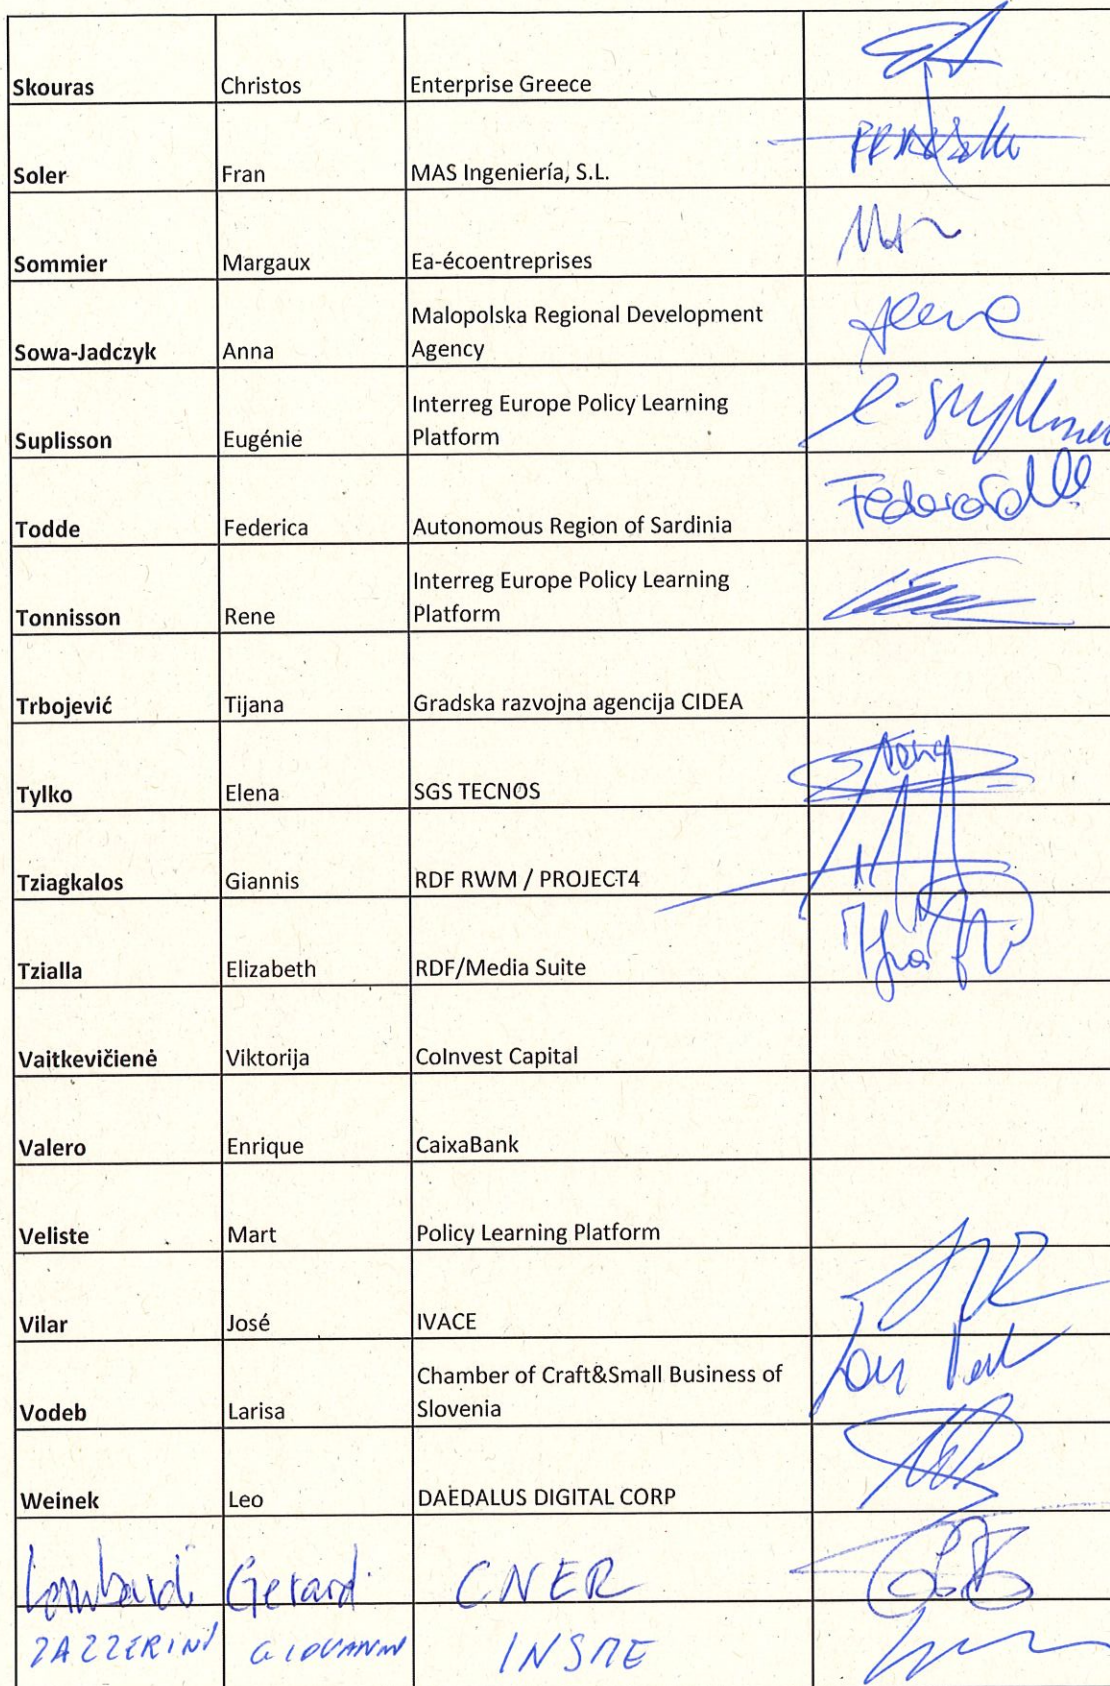 Skouras Christos Enterprise Greece
Soler Fran MAS Ingeniería, S.L.
Sommier Margaux Ea-écoentreprises
Malopolska Regional Development
Sowa-Jadczyk Anna Agency
Interreg Europe Policy Learning
Suplisson Eugénie Platform
Todde Federica Autonomous Region of Sardinia
Interreg Europe Policy Learning
Tonnisson Rene Platform
Trbojević Tijana Gradska razvojna agencija CIDEA
Tylko Elena SGS TECNOS
Tziagkalos Giannis RDF RWM / PROJECT4
Tzialla Elizabeth RDF/Media Suite
Vaitkevičienė Viktorija CoInvest Capital
Valero Enrique CaixaBank
Veliste Mart Policy Learning Platform
Vilar José IVACE
Chamber of Craft&Small Business of
Vodeb Larisa Slovenia
Weinek Leo DAEDALUS DIGITAL CORP
Lombardi Gerardi CNER
ZAZZERINI GIOVANNI INSME